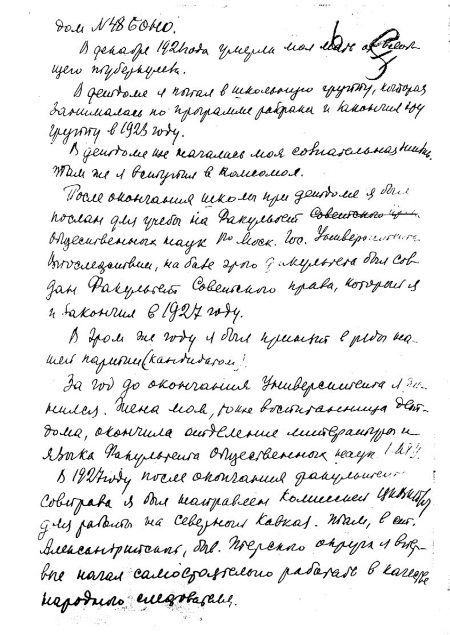 дом №48 БОНО.
В декабре 1921 года умерла моя мать от
щего туберкулеза.
В детдоме я попал в школьную группу, которая
занималась по программе рабфака и закончил эту
группу в 1923 году.
В детдоме же началась моя сознательная жизнь.
Там же я вступил в комсомол.
После окончания школы при детдоме я был
послан для учебы на Факультет Советского
общественных наук Моск. Гос. Университета
Впоследствии, на базе этого факультета был соз-
дан Факультет Советского права, который я
и закончил в 1927 году.
В этом же году я был принят в ряды на-
шей партии (кандидатом)
За год до окончания Университета я же-
нился. Жена моя, тоже воспитанница дет-
дома, окончила отделение литературы и
языка Факультета общественных наук
В 1927 году после окончания факультета
совправа я был направлен комиссией
для работы на Северный Кавказ. Там, в ст.
Александрийской, быв. Терского округа я впер-
вые начал самостоятельно работать в качестве
народного следователя.